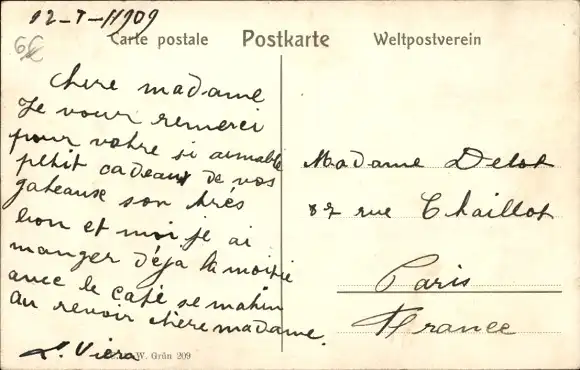 12-7-1909
6€
Carte postale Postkarte Weltpostverein
Chere madame
Je vous remerci
pour vohre si aimable
petit cadeaux de vos
gateause son trés
bon et moi je ai
manger déja la moitié
avec le café se matin
au revoir chère madame.
L. Viera
W. Grün 209
Madame Delot
87 rue Chaillot
Paris
France